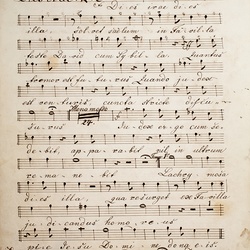 Di-es irae di-es
illa solvet saeclum in favilla
teste David cum Sybilla Quantus
tremor est futurus Quando judex
est venturus cuncta stricte discu-
surus Judex ergo cum se-
debit, apparebit nil inultum
remanebit Lachrymosa
dies illa, qua resurget ex favilla
judicandus homo reus
pie Jesu Domine dona eis